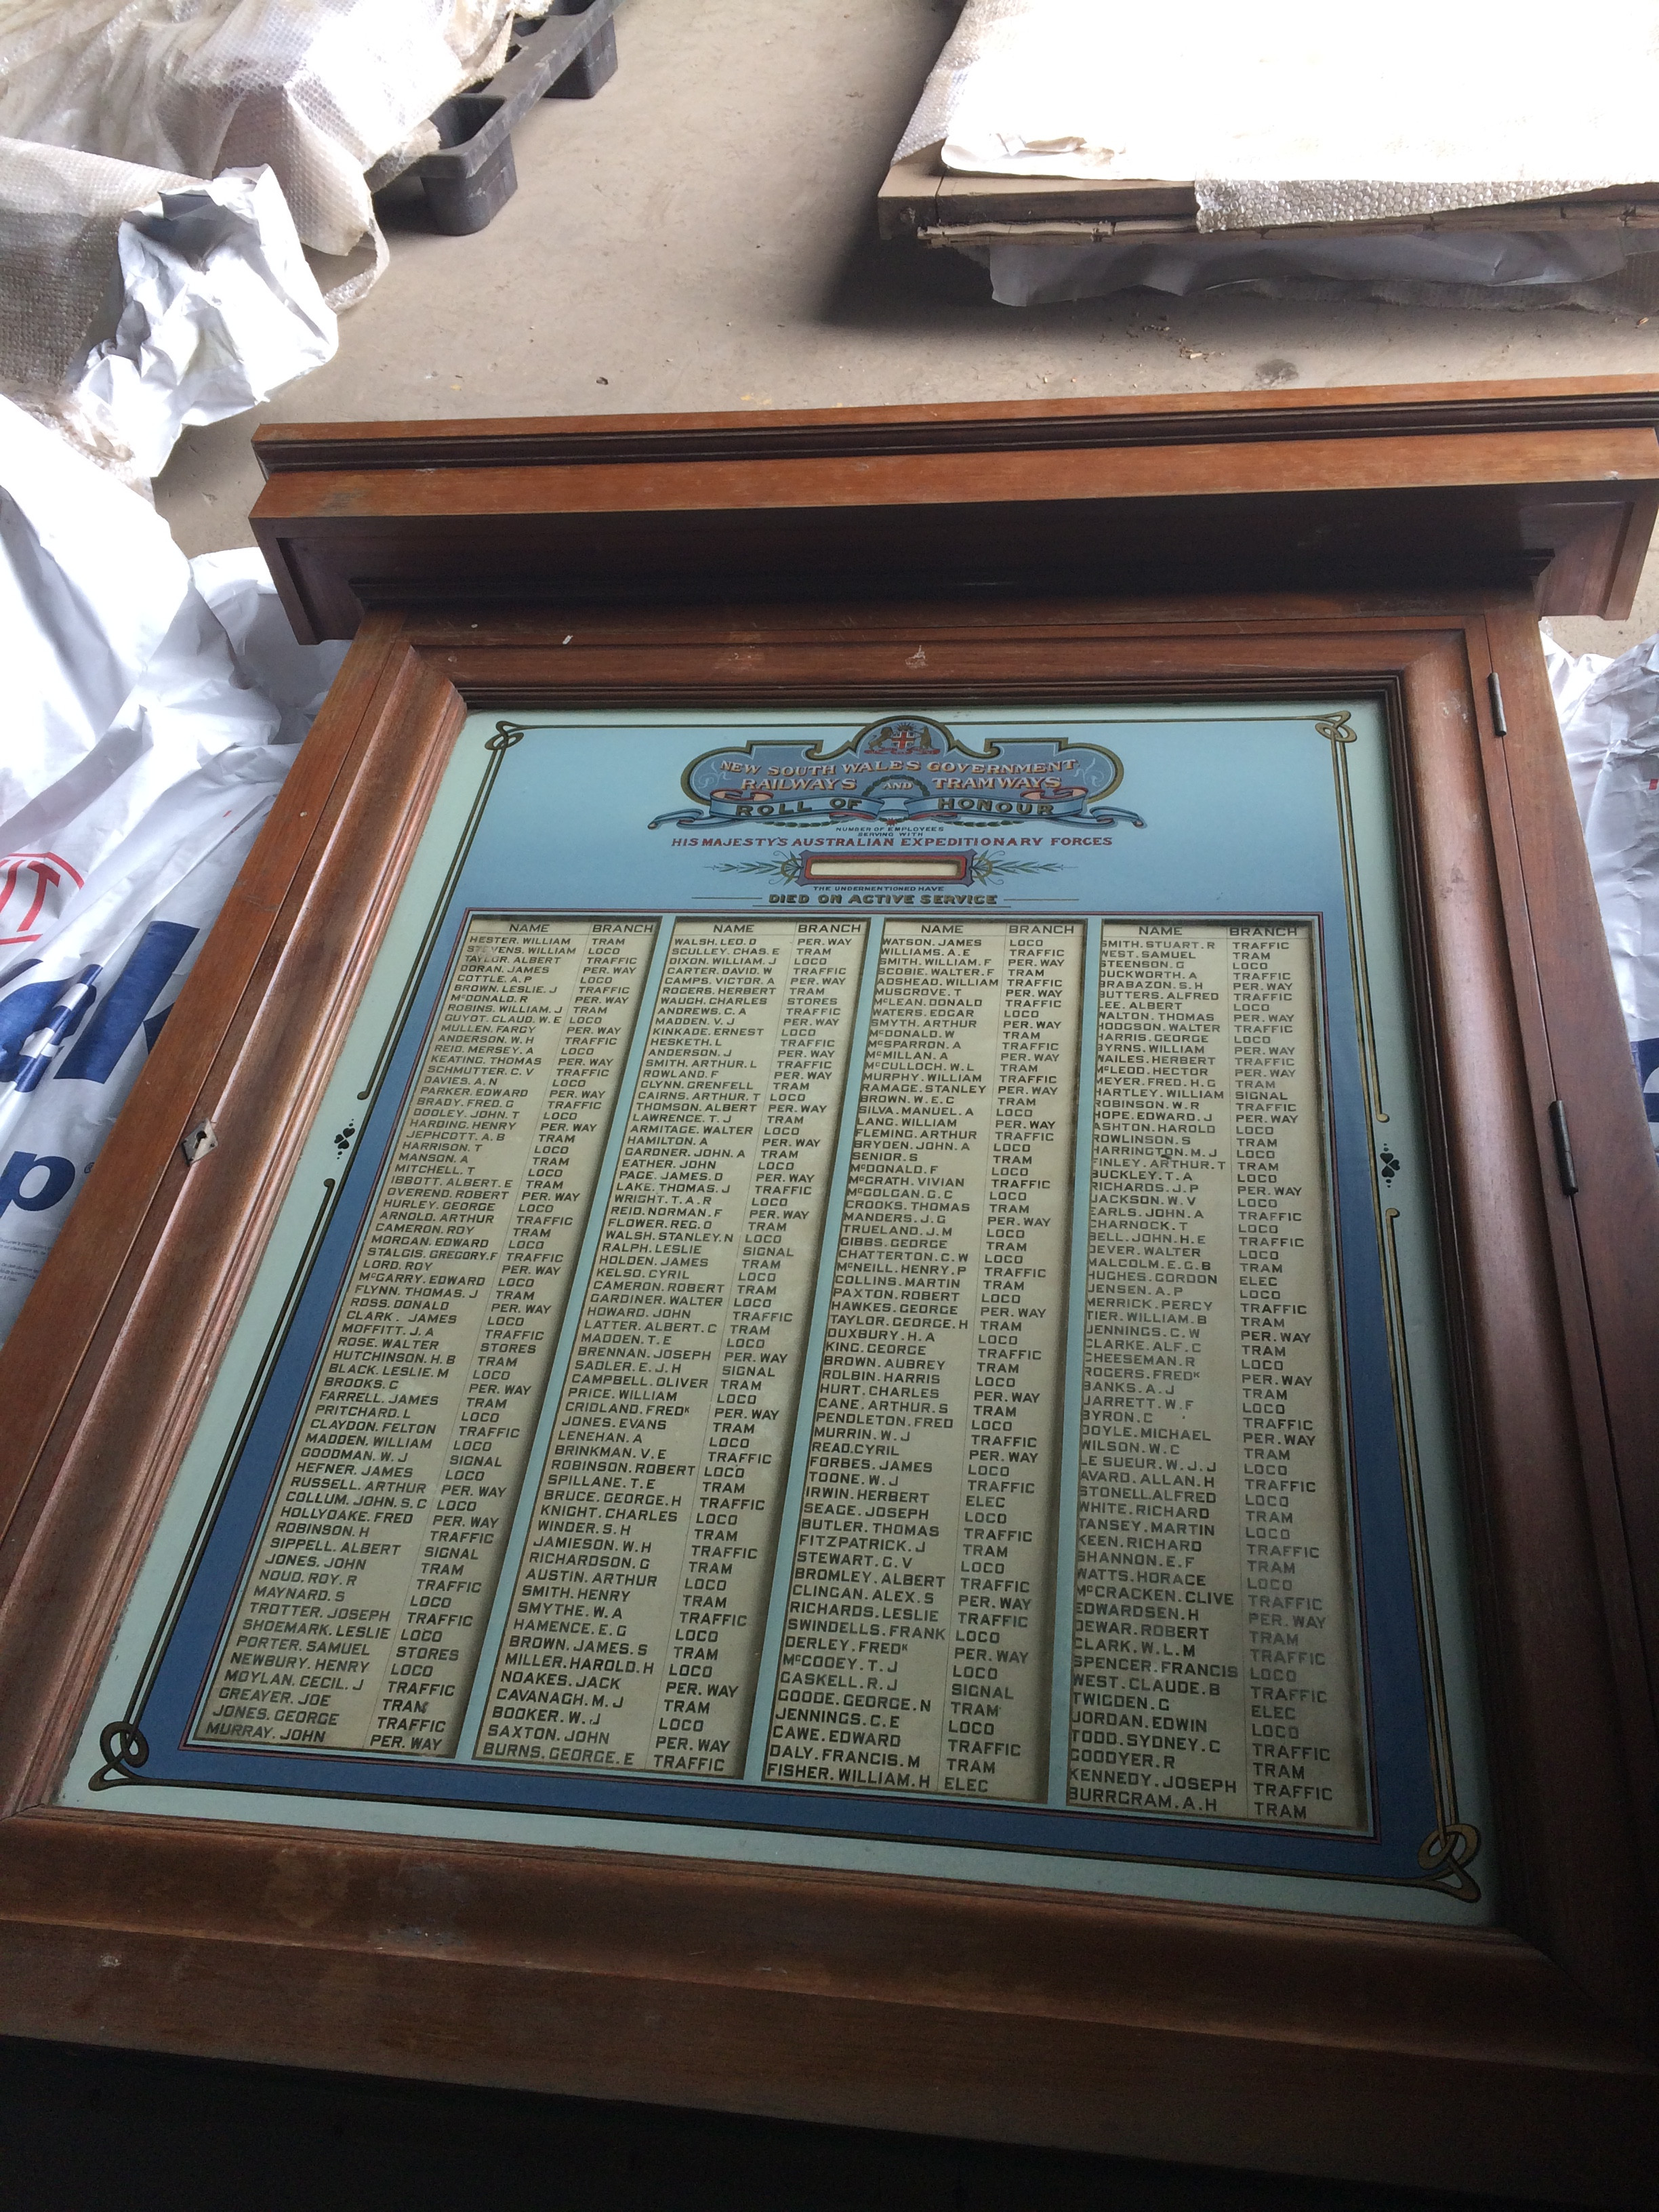 NEW SOUTH WALES GOVERNMENT
RAILWAYS AND TRAMWAYS
ROLL OF HONOUR
NUMBER OF EMPLOYEES
SERVING WITH
HIS MAJESTY'S AUSTRALIAN EXPEDITIONARY FORCES
THE UNDERMENTIONED HAVE
DIED ON ACTIVE SERVICE
NAME BRANCH
HESTER. WILLIAM TRAM
STEVENS. WILLIAM LOCO
TAYLOR. ALBERT TRAFFIC
DORAN. JAMES PER. WAY
COTTLE. A.P LOCO
BROWN. LESLIE. J TRAFFIC
McDONALD. R PER. WAY
ROBINS. WILLIAM. J TRAM
GUYOT. CLAUD. W. E LOCO
MULLEN. FARCY PER. WAY
ANDERSON. W. H TRAFFIC
REID. MERSEY. A LOCO
KEATING. THOMAS PER. WAY
SCHMUTTER. C. V TRAFFIC
DAVIES. A. N LOCO
PARKER. EDWARD PER. WAY
BRADY. FRED. G TRAFFIC
DOOLEY. JOHN. T LOCO
HARDING. HENRY PER. WAY
JEPHCOTT. A. B TRAM
HARRISON. T LOCO
MANSON. A TRAM
MITCHELL. T LOCO
IBBOTT. ALBERT. E TRAM
OVEREND. ROBERT PER. WAY
HURLEY. GEORGE LOCO
ARNOLD. ARTHUR TRAFFIC
CAMERON. ROY TRAM
MORGAN. EDWARD LOCO
STALGIS. GREGORY. F TRAFFIC
LORD. ROY PER. WAY
McGARRY. EDWARD LOCO
FLYNN. THOMAS. J TRAM
ROSS. DONALD PER. WAY
CLARK. JAMES LOCO
MOFFITT. J. A TRAFFIC
ROSE. WALTER STORES
HUTCHINSON. H. B TRAM
BLACK. LESLIE. M LOCO
BROOKS. C PER. WAY
FARRELL. JAMES TRAM
PRITCHARD. L LOCO
CLAYDON. FELTON TRAFFIC
MADDEN. WILLIAM LOCO
GOODMAN. W. J SIGNAL
HEFNER. JAMES LOCO
RUSSELL. ARTHUR PER. WAY
COLLUM. JOHN. S. C LOCO
HOLLYOAKE. FRED PER. WAY
ROBINSON. H TRAFFIC
SIPPELL. ALBERT SIGNAL
JONES. JOHN TRAM
NOUD. ROY. R TRAFFIC
MAYNARD. S LOCO
TROTTER. JOSEPH TRAFFIC
SHOEMARK. LESLIE LOCO
PORTER. SAMUEL STORES
NEWBURY. HENRY LOCO
MOYLAN. CECIL. J TRAFFIC
GREAYER. JOE TRAM
JONES. GEORGE TRAFFIC
MURRAY. JOHN PER. WAY
NAME BRANCH
WALSH. LEO. D PER. WAY
SCULLEY. CHAS. E TRAM
DIXON. WILLIAM. J LOCO
CARTER. DAVID. W TRAFFIC
CAMPS. VICTOR. A PER. WAY
ROGERS. HERBERT TRAM
WAUGH. CHARLES STORES
ANDREWS. C. A TRAFFIC
MADDEN. V. J PER. WAY
KINKADE. ERNEST LOCO
HESKETH. L TRAFFIC
ANDERSON. J PER. WAY
SMITH. ARTHUR. L TRAFFIC
ROWLAND. F PER. WAY
GLYNN. GRENFELL TRAM
CAIRNS. ARTHUR. T LOCO
THOMSON. ALBERT PER. WAY
LAWRENCE. T. J TRAM
ARMITAGE. WALTER LOCO
HAMILTON. A PER. WAY
GARDNER. JOHN. A TRAM
EATHER. JOHN LOCO
PAGE. JAMES. D TRAM
LAKE. THOMAS. J TRAFFIC
WRIGHT. T. A. R LOCO
REID. NORMAN. F PER. WAY
FLOWER. REG. O TRAM
WALSH. STANLEY. N LOCO
RALPH. LESLIE SIGNAL
HOLDEN. JAMES TRAM
KELSO. CYRIL LOCO
CAMERON. ROBERT TRAM
GARDINER. WALTER LOCO
HOWARD. JOHN TRAFFIC
LATTER. ALBERT. C TRAM
MADDEN. T. E LOCO
BRENNAN. JOSEPH PER. WAY
SADLER. E. J. H SIGNAL
CAMPBELL. OLIVER TRAM
PRICE. WILLIAM LOCO
CRIDLAND. FREDK PER. WAY
JONES. EVANS TRAM
LENEHAN. A LOCO
BRINKMAN. V. E TRAFFIC
ROBINSON. ROBERT LOCO
SPILLANE. T. E TRAM
BRUCE. GEORGE. H TRAFFIC
KNIGHT. CHARLES LOCO
WINDER. S. H TRAM
JAMIESON. W. H TRAFFIC
RICHARDSON. G TRAM
AUSTIN. ARTHUR LOCO
SMITH. HENRY TRAM
SMYTHE. W. A TRAFFIC
HAMENCE. E. G LOCO
BROWN. JAMES. S TRAM
MILLER. HAROLD. H LOCO
NOAKES. JACK PER. WAY
CAVANAGH. M. J TRAM
BOOKER. W. J LOCO
SAXTON. JOHN PER. WAY
BURNS. GEORGE. E TRAFFIC
NAME BRANCH
WATSON. JAMES LOCO
WILLIAMS. A. E TRAFFIC
SMITH. WILLIAM. F PER. WAY
SCOBIE. WALTER. F TRAM
ADSHEAD. WILLIAM PER. WAY
MUSGROVE. T PER. WAY
McLEAN. DONALD TRAFFIC
WATERS. EDGAR LOCO
SMYTH. ARTHUR PER. WAY
McDONALD. W TRAM
McSPARRON. A TRAFFIC
McMILLAN. A PER. WAY
McCULLOCH. W. L TRAM
MURPHY. WILLIAM TRAFFIC
RAMAGE. STANLEY PER. WAY
BROWN. W. E. C TRAM
SILVA. MANUEL. A LOCO
LANG. WILLIAM PER. WAY
FLEMING. ARTHUR TRAFFIC
BRYDEN. JOHN. A LOCO
SENIOR. S TRAM
McDONALD. F LOCO
McGRATH. VIVIAN TRAFFIC
McGOLGAN. G. C LOCO
CROOKS. THOMAS TRAM
MANDERS. J. G PER. WAY
TRUELAND. J. M LOCO
GIBBS. GEORGE TRAM
CHATTERTON. C. W LOCO
McNEILL. HENRY. P TRAFFIC
COLLINS. MARTIN TRAM
PAXTON. ROBERT LOCO
HAWKES. GEORGE PER. WAY
TAYLOR. GEORGE. H TRAM
DUXBURY. H. A LOCO
KING. GEORGE TRAFFIC
BROWN. AUBREY TRAM
ROLBIN. HARRIS LOCO
HURT. CHARLES PER. WAY
CANE. ARTHUR. S TRAM
PENDLETON. FRED LOCO
MURRIN. W. J TRAFFIC
READ. CYRIL PER. WAY
FORBES. JAMES LOCO
TOONE. W. J TRAFFIC
IRWIN. HERBERT ELEC
SEAGE. JOSEPH LOCO
BUTLER. THOMAS TRAFFIC
FITZPATRICK. J TRAM
STEWART. G. V LOCO
BROMLEY. ALBERT TRAFFIC
CLINGAN. ALEX. S PER. WAY
RICHARDS. LESLIE TRAFFIC
SWINDELLS. FRANK LOCO
DERLEY. FREDK PER. WAY
McCOOEY. T. J LOCO
GASKELL. R. J SIGNAL
GOODE. GEORGE. N TRAM
JENNINGS. C. E LOCO
CAWE. EDWARD TRAFFIC
DALY. FRANCIS. M TRAM
FISHER. WILLIAM. H ELEC
NAME BRANCH
SMITH. STUART. R TRAFFIC
WEST. SAMUEL TRAM
STEENSON. G LOCO
DUCKWORTH. A TRAFFIC
BRABAZON. S. H PER. WAY
BUTTERS. ALFRED TRAFFIC
LEE. ALBERT LOCO
WALTON. THOMAS PER. WAY
HODGSON. WALTER TRAFFIC
HARRIS. GEORGE LOCO
BYRNS. WILLIAM PER. WAY
WAILES. HERBERT TRAFFIC
McLEOD. HECTOR PER. WAY
MEYER. FRED. H. G TRAM
HARTLEY. WILLIAM SIGNAL
ROBINSON. W. R TRAFFIC
HOPE. EDWARD. J PER. WAY
ASHTON. HAROLD LOCO
ROWLINSON. S TRAM
HARRINGTON. M. J LOCO
FINLEY. ARTHUR. T TRAM
BUCKLEY. T. A LOCO
RICHARDS. J. P PER. WAY
JACKSON. W. V LOCO
EARLS. JOHN. A TRAFFIC
CHARNOCK. T LOCO
BELL. JOHN. H. E TRAFFIC
DEVER. WALTER LOCO
MALCOLM. E. G. B TRAM
HUGHES. GORDON ELEC
JENSEN. A. P LOCO
MERRICK. PERCY TRAFFIC
TIER. WILLIAM. B TRAM
JENNINGS. C. W PER. WAY
CLARKE. ALF. C TRAM
CHEESEMAN. R LOCO
ROGERS. FREDK PER. WAY
BANKS. A. J TRAM
JARRETT. W. F LOCO
BYRON. C TRAFFIC
DOYLE. MICHAEL PER. WAY
WILSON. W. C TRAM
LE SUEUR. W. J. J LOCO
AVARD. ALLAN. H TRAFFIC
STONELL. ALFRED LOCO
WHITE. RICHARD TRAM
TANSEY. MARTIN LOCO
KEEN. RICHARD TRAFFIC
SHANNON. E. F TRAM
WATTS. HORACE LOCO
McCRACKEN. CLIVE TRAFFIC
EDWARDSEN. H PER. WAY
DEWAR. ROBERT TRAM
CLARK. W. L. M TRAFFIC
SPENCER. FRANCIS LOCO
WEST. CLAUDE. B TRAFFIC
TWIGDEN. G ELEC
JORDAN. EDWIN LOCO
TODD. SYDNEY. C TRAFFIC
GOODYER. R TRAM
KENNEDY. JOSEPH TRAFFIC
BURRGRAM. A. H TRAM